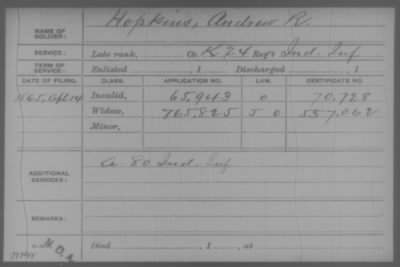 NAME OF SOLDIER: Hopkins, Andrew R.
SERVICE: Late rank, Co. K 24 Reg't Ind. Inf
TERM OF SERVICE: Enlisted , 1 Discharged , 1
DATE OF FILING. CLASS. APPLICATION NO. LAW. CERTIFICATE NO.
1865, Sept 14 Invalid, 65,943 O 70,728
Widow, 765,825 J O 557,062
Minor,
ADDITIONAL SERVICES: Co 80 Ind. Inf
REMARKS:
Died , 1 , at